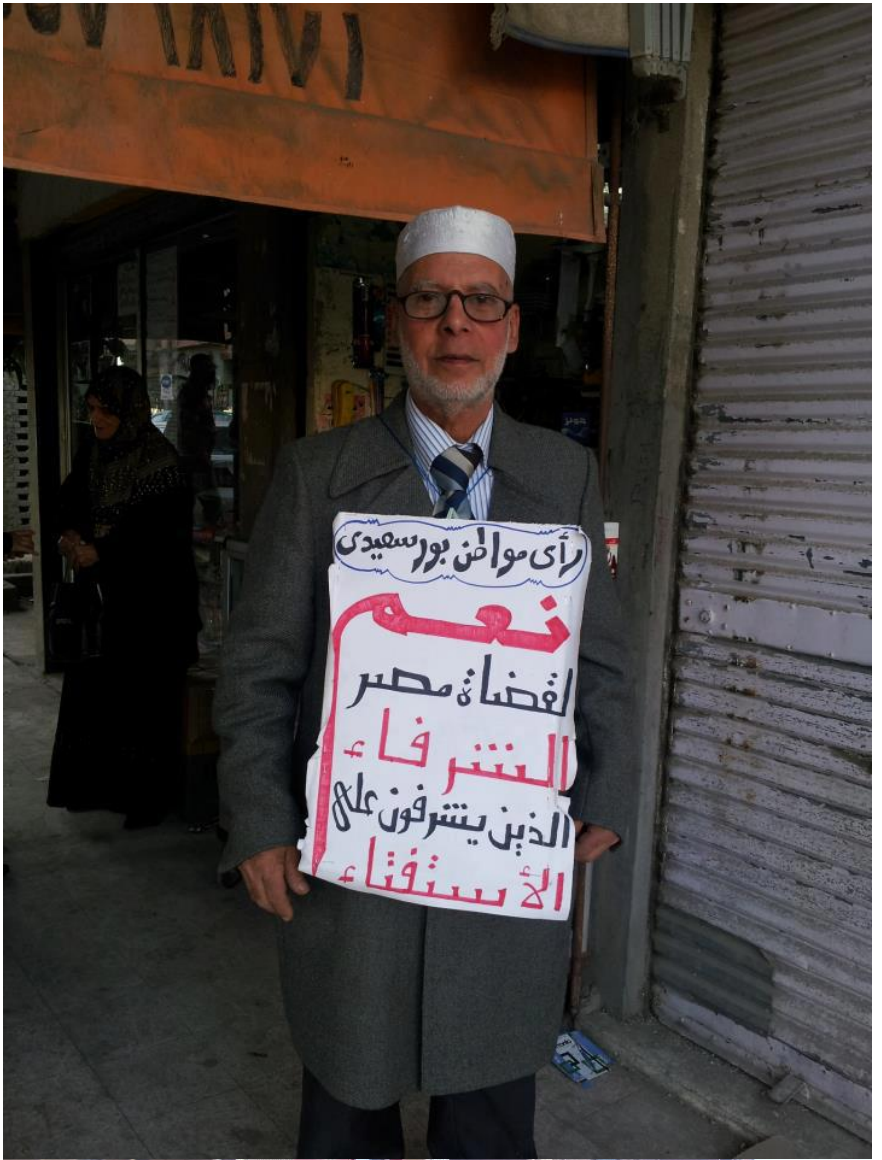 رأى مواطن بورسعيدى
نعم
لقضاة مصر
الشرفاء
الذين يشرفون على
الأستفتاء